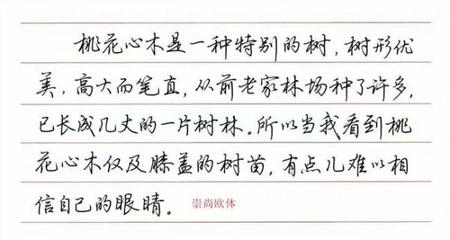 桃花心木是一种特别的树，树形优
美，高大而笔直，从前老家林场种了许多，
已长成几丈的一片树林。所以当我看到桃
花心木仅及膝盖的树苗，有点儿难以相
信自己的眼睛。 崇尚欧体